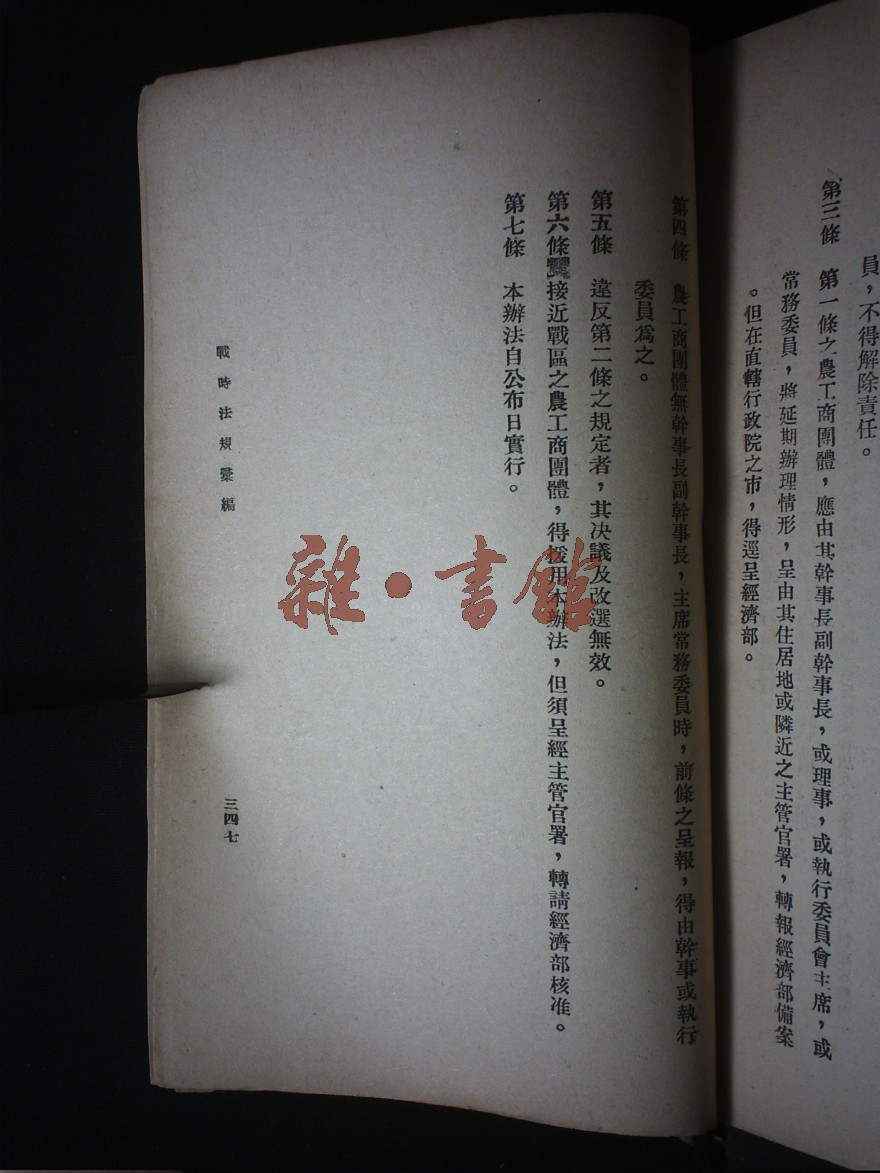 員，不得解除責任。
第三條　第一條之農工商團體，應由其幹事長副幹事長，或理事，或執行委員會主席，或
常務委員，將延期辦理情形，呈由其住居地或隣近之主管官署，轉報經濟部備案
。但在直轄行政院之市，得逕呈經濟部。
第四條　農工商團體無幹事長副幹事長，主席常務委員時，前條之呈報，得由幹事或執行
委員爲之。
第五條　違反第二條之規定者，其決議及改選無效。
第六條　接近戰區之農工商團體，得援用本辦法，但須呈經主管官署，轉請經濟部核准。
第七條　本辦法自公布日實行。
戰時法規彙編
三四七
雜·書館